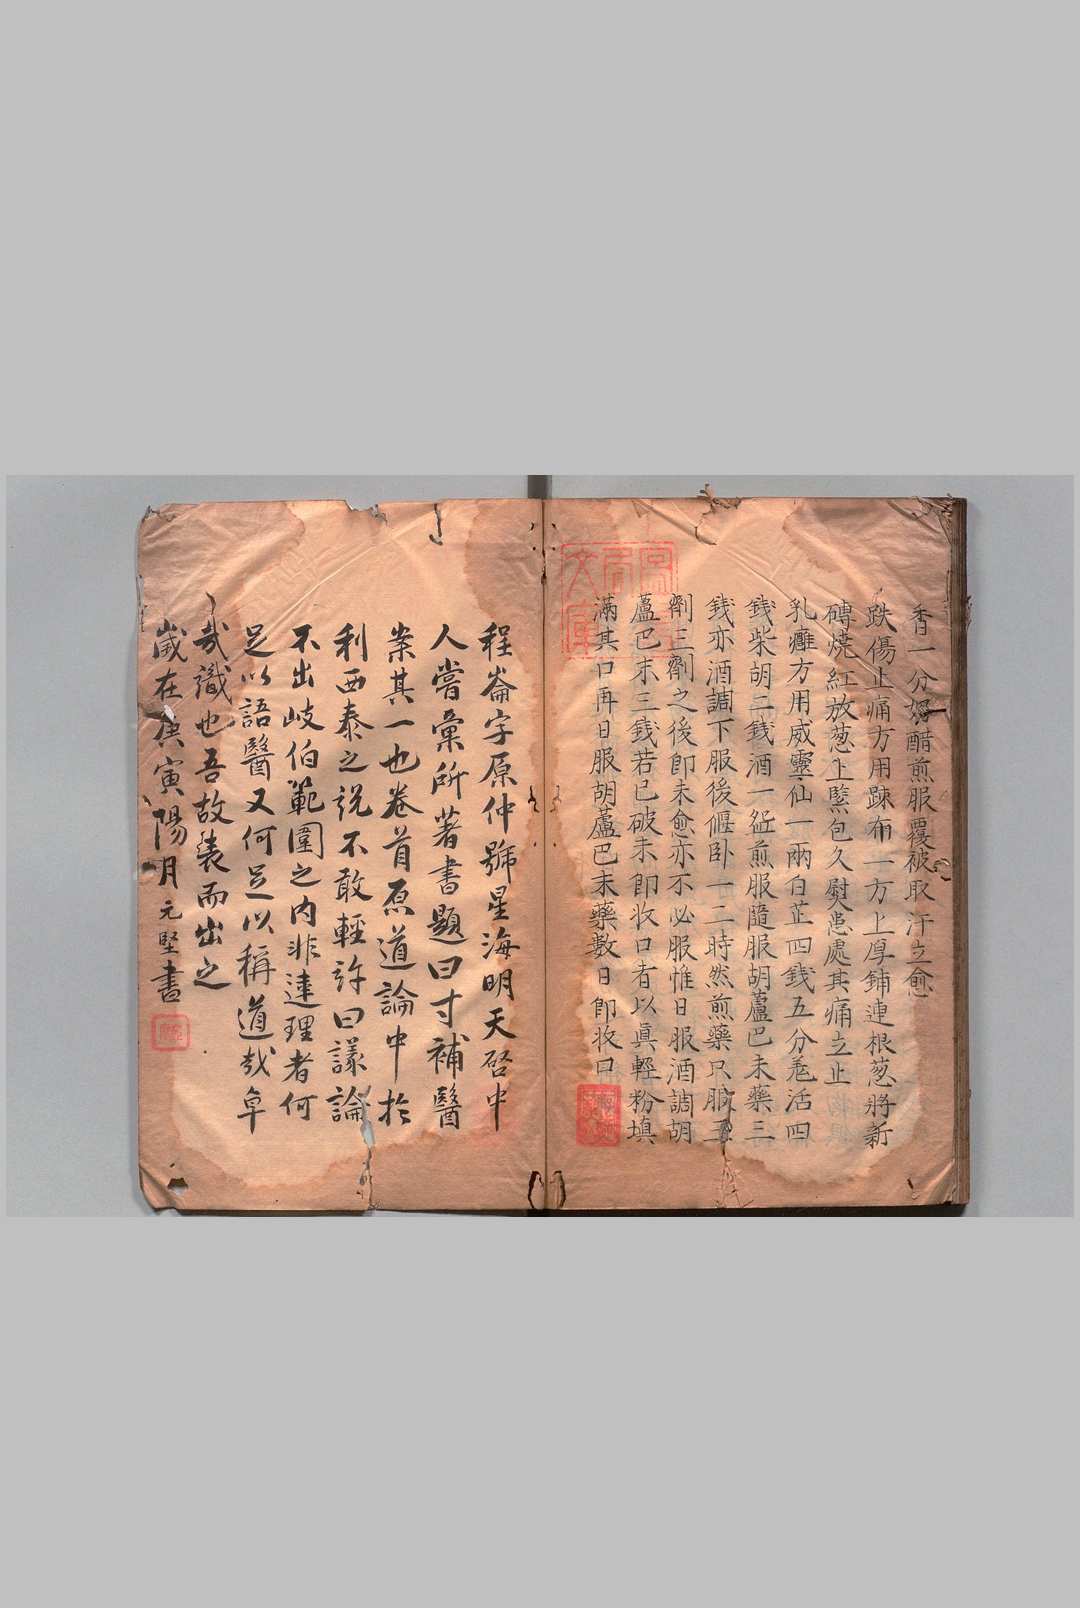 香一分好醋煎服覆被取汗立愈
跌傷止痛方用踈布一方上厚鋪連根葱將新
磚燒紅放葱上緊包久熨患處其痛立止
乳癰方用威靈仙一兩白芷四錢五分羗活四
錢柴胡二錢酒一碗煎服隨服胡蘆巴末藥三
錢亦酒調下服後偃卧一二時然煎藥只服三
劑三劑之後即未愈亦不必服惟日服酒調胡
蘆巴末三錢若已破未即收口者以真輕粉填
滿其口再日服胡蘆巴末藥數日即收口
程崙字原仲號星海明天啓中
人嘗彙所著書題曰寸補醫
案其一也卷首原道論中於
利西泰之説不敢輕許曰議論
不出岐伯範圍之内非達理者何
足以語醫又何足以稱道哉卓
哉識也吾故表而出之
歲在庚寅陽月 元堅書